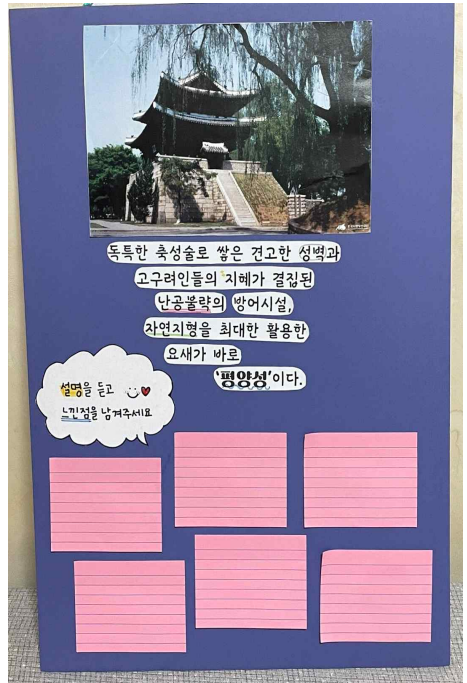 독특한 축성술로 쌓은 견고한 성벽과
고구려인들의 지혜가 결집된
난공불략의 방어시설,
자연지형을 최대한 활용한
요새가 바로
'평양성'이다.
설명을 듣고
느낀점을 남겨주세요